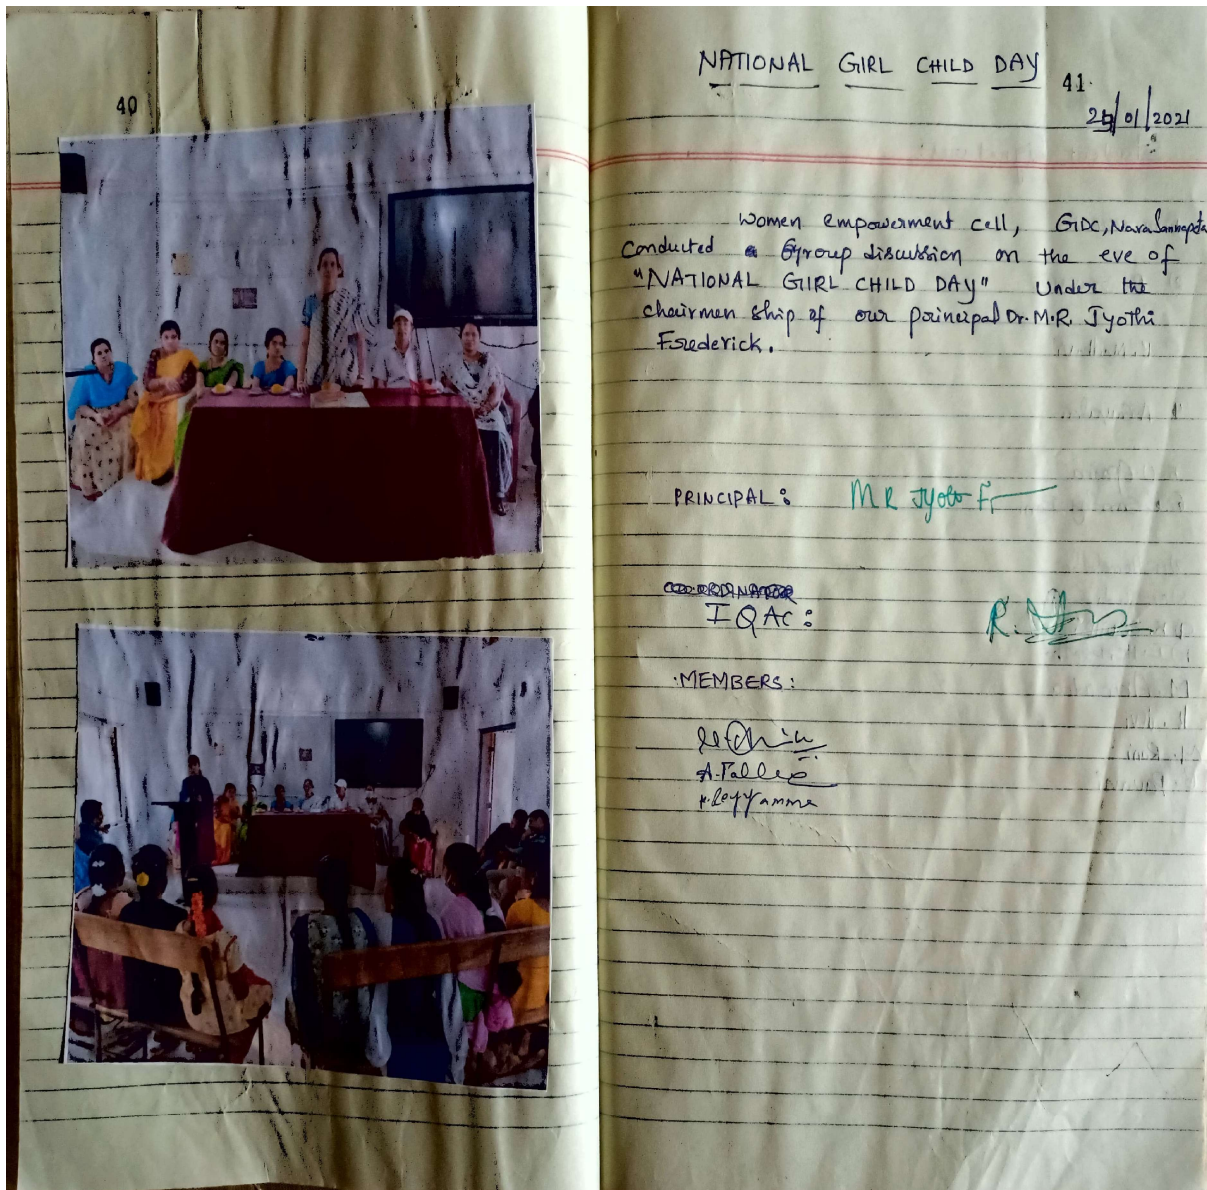 40
NATIONAL GIRL CHILD DAY
41.
/01/2021
Women empowerment cell, GDC, Narasannapeta
conducted a Group discussion on the eve of
"NATIONAL GIRL CHILD DAY" Under the
chairmen ship of our principal Dr. M.R. Jyothi
Frederick.
PRINCIPAL: M R Jyoti F
IQAC: R.
MEMBERS:
A.